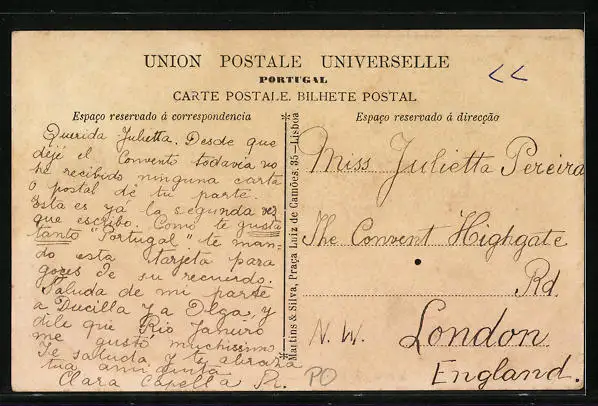 UNION POSTALE UNIVERSELLE
PORTUGAL
CARTE POSTALE. BILHETE POSTAL
Espaço reservado á correspondencia
Espaço reservado á direcção
Querida Julietta. Desde que
dejé el Convento todavia no
he recibido ninguna carta
o postal de tu parte.
Esta es yá la segunda vez
que escribo. Como te gusta
tanto "Portugal" te man-
do esta tarjeta para
goces de su recuerdo.
Saluda de mi parte
a Ducilla y a Olga, y
dile que Rio Janeiro
me gustó muchissimo
Te saluda y te abraza
tua amiguita
Clara Capella
Martins & Silva, Praça Luiz de Camões, 35—Lisboa
Miss Julietta Pereira
The Convent Highgate
Rd.
N. W. London
England.
PO